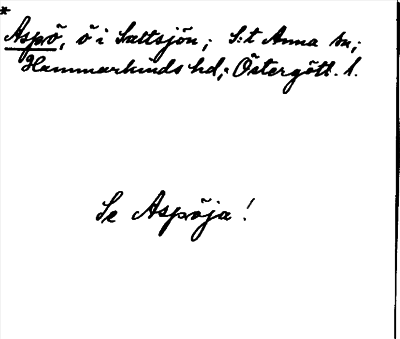 *
Aspö, ö i Saltsjön; S:t Anna sn;
Hammarkinds hd; Östergötl. l.
Se Aspöja!